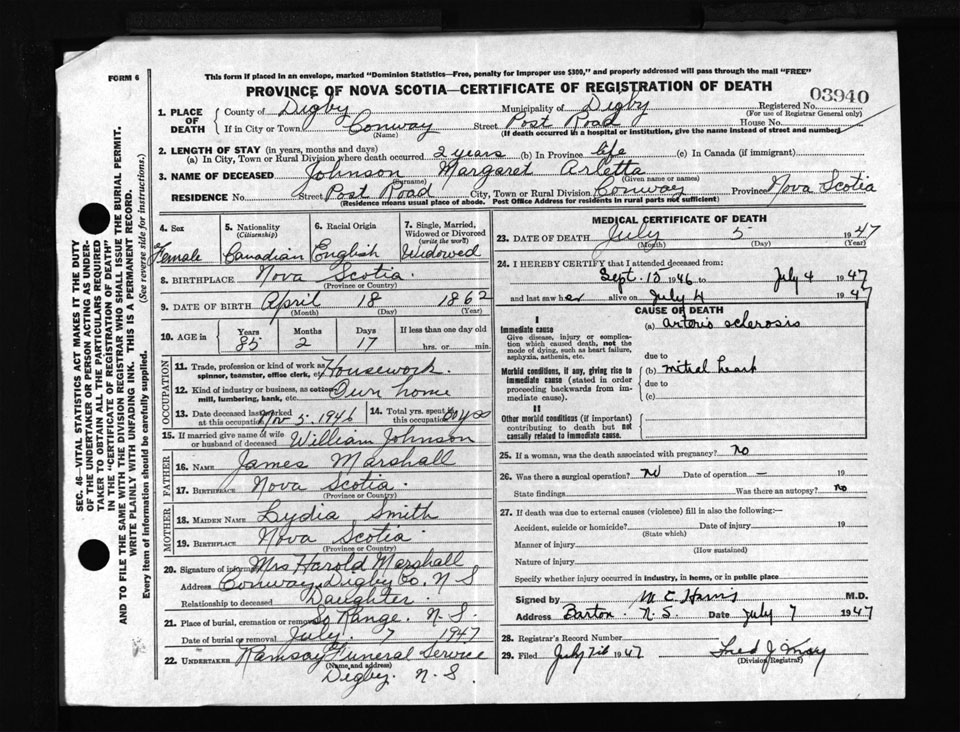 FORM 6
This form if placed in an envelope, marked "Dominion Statistics—Free, penalty for improper use $300," and properly addressed will pass through the mail "FREE"
PROVINCE OF NOVA SCOTIA—CERTIFICATE OF REGISTRATION OF DEATH
03940
1. PLACE OF DEATH
County of Digby Municipality of Digby Registered No.
(For use of Registrar General only)
If in City or Town Conway Street Post Road House No.
(Name) (If death occurred in a hospital or institution, give the name instead of street and number)
2. LENGTH OF STAY (in years, months and days)
(a) In City, Town or Rural Division where death occurred 2 years (b) In Province life (c) In Canada (if immigrant)
3. NAME OF DECEASED Johnson Margaret Arletta
(Surname) (Given name or names)
RESIDENCE No. Street Post Road City, Town or Rural Division Conway Province Nova Scotia
(Residence means usual place of abode. Post Office Address for residents in rural parts not sufficient)
4. Sex Female
5. Nationality (Citizenship) Canadian
6. Racial Origin English
7. Single, Married, Widowed or Divorced (write the word) Widowed
8. BIRTHPLACE Nova Scotia.
(Province or Country)
9. DATE OF BIRTH April 18 1862
(Month) (Day) (Year)
10. AGE in Years 85 Months 2 Days 17 If less than one day old
hrs. or min.
OCCUPATION
11. Trade, profession or kind of work as spinner, teamster, office clerk, etc. Housework.
12. Kind of industry or business, as cotton mill, lumbering, bank, etc. Own home
13. Date deceased last worked at this occupation Nov 5. 1946
14. Total yrs. spent in this occupation
15. If married give name of wife or husband of deceased William Johnson
FATHER
16. NAME James Marshall
17. BIRTHPLACE Nova Scotia.
(Province or Country)
MOTHER
18. MAIDEN NAME Lydia Smith
19. BIRTHPLACE Nova Scotia.
(Province or Country)
20. Signature of informant Mrs Harold Marshall
Address Conway Digby Co. N S
Relationship to deceased Daughter.
21. Place of burial, cremation or removal So Range. N. S.
Date of burial or removal July. 7 1947
22. UNDERTAKER Ramsay Funeral Service
(Name and address)
Digby. N. S.
MEDICAL CERTIFICATE OF DEATH
23. DATE OF DEATH July 5 1947
(Month) (Day) (Year)
24. I HEREBY CERTIFY that I attended deceased from
Sept. 15 1946 to July 4 1947
and last saw her alive on July 4 1947
CAUSE OF DEATH
I
Immediate cause
(a) arterio sclerosis
Give disease, injury or complication which caused death, not the mode of dying, such as heart failure, asphyxia, asthenia, etc.
due to
Morbid conditions, if any, giving rise to immediate cause (stated in order proceeding backwards from immediate cause).
(b) mitral heart
due to
(c)
II
Other morbid conditions (if important) contributing to death but not causally related to immediate cause.
25. If a woman, was the death associated with pregnancy? No
26. Was there a surgical operation? No Date of operation — 19
State findings Was there an autopsy? No
27. If death was due to external causes (violence) fill in also the following:—
Accident, suicide or homicide? Date of injury 19
(State which)
Manner of injury
(How sustained)
Nature of injury
Specify whether injury occurred in industry, in home, or in public place
Signed by W E Harris M.D.
Address Barton. N. S. Date July 7 1947
28. Registrar's Record Number
29. Filed July 7th 1947 Fred J.
(Division Registrar)
SEC. 46—VITAL STATISTICS ACT MAKES IT THE DUTY
OF THE UNDERTAKER OR PERSON ACTING AS UNDER-
TAKER TO OBTAIN ALL THE PARTICULARS REQUIRED
IN THE "CERTIFICATE OF REGISTRATION OF DEATH"
AND TO FILE THE SAME WITH THE DIVISION REGISTRAR WHO SHALL ISSUE THE BURIAL PERMIT.
WRITE PLAINLY WITH UNFADING INK. THIS IS A PERMANENT RECORD.
Every item of information should be carefully supplied. (See reverse side for instructions.)